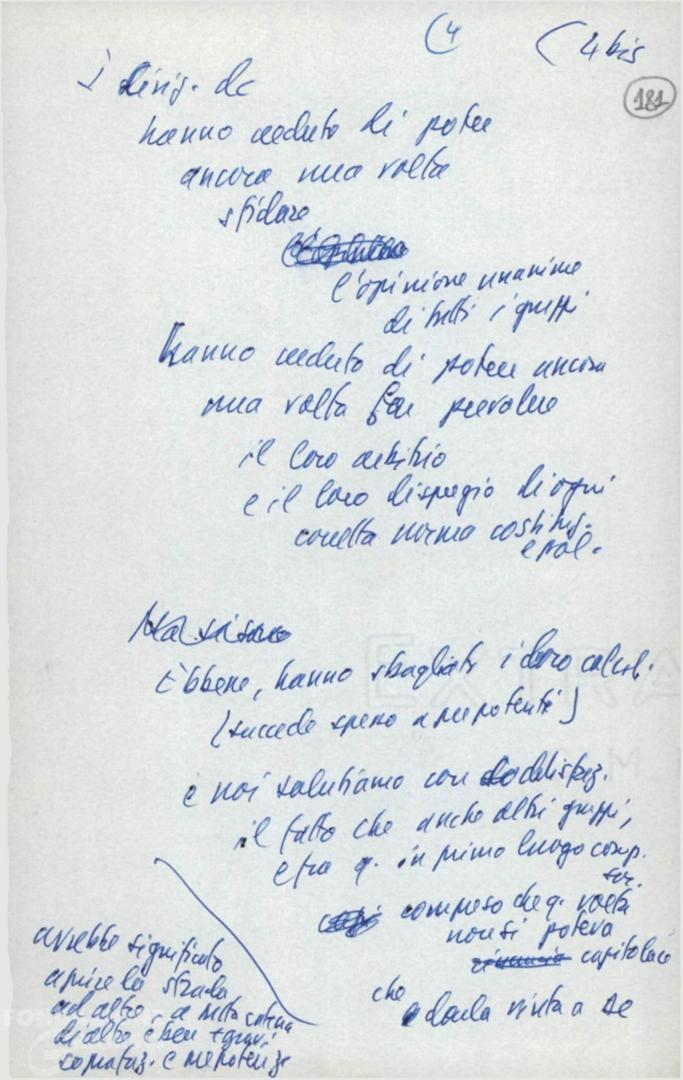 (4 (4 bis
181
I dirig. dc
hanno creduto di poter
ancora una volta
sfidare
l'opinione unanime
di tutti i gruppi
Hanno creduto di poter ancora
una volta far prevalere
il loro arbitrio
e il loro dispregio di ogni
corretta norma costituz.
e pol.
Ma si sono
Ebbene, hanno sbagliato i loro calcoli.
(succede spesso ai prepotenti)
e noi salutiamo con soddisfaz.
il fatto che anche altri gruppi,
e fra q. in primo luogo comp.
soc.
compreso che q. volta
non si poteva
rinuncia capitolare
che
e darla vinta a DC
avrebbe significato
aprire la strada
ad altre - a tutta catena
di altre e ben + gravi
sopraffaz. e prepotenze